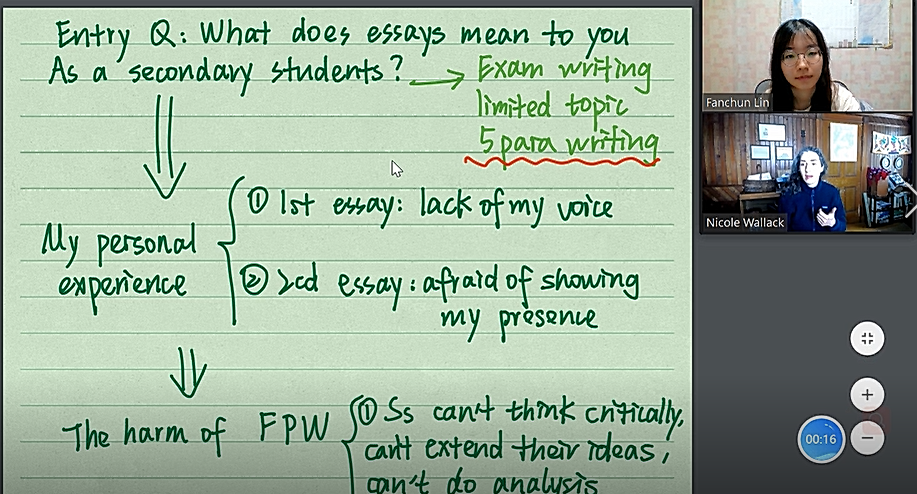 Entry Q: What does essays mean to you
As a secondary students?
Exam writing
limited topic
5 para writing
My personal
experience
① 1st essay: lack of my voice
② 2cd essay: afraid of showing
my presence
The harm of FPW
① Ss can't think critically,
can't extend their ideas,
can't do analysis
Fanchun Lin
Nicole Wallack
00:16